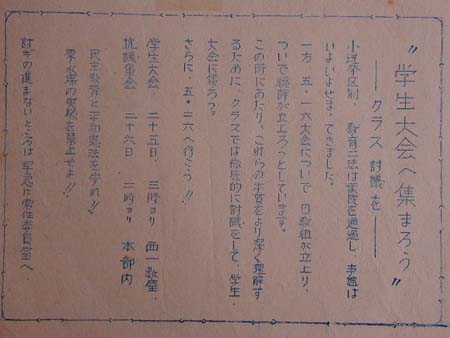 "学生大会へ集まろう"
――クラス討議を――
小選挙区制 教育二法は衆院を通過し、事態は
いよいよせまってきました。
一方 五・一六大会について 日教組が立上り、
ついで総評が立上ろうとしています。
この時にあたり、これらの本質をより深く理解す
るために、クラスでは徹底的に討議をして、学生
大会に集ろう。
さらに 五・二六へ行こう!!
学生大会 二十五日、三時ヨリ 西一教室、
抗議集会 二十六日 二時ヨリ 本部内
民主教育と平和憲法を守れ!!
原水爆の実験を禁止せよ!!
討ギの進まないところは 早急に常任委員会室へ